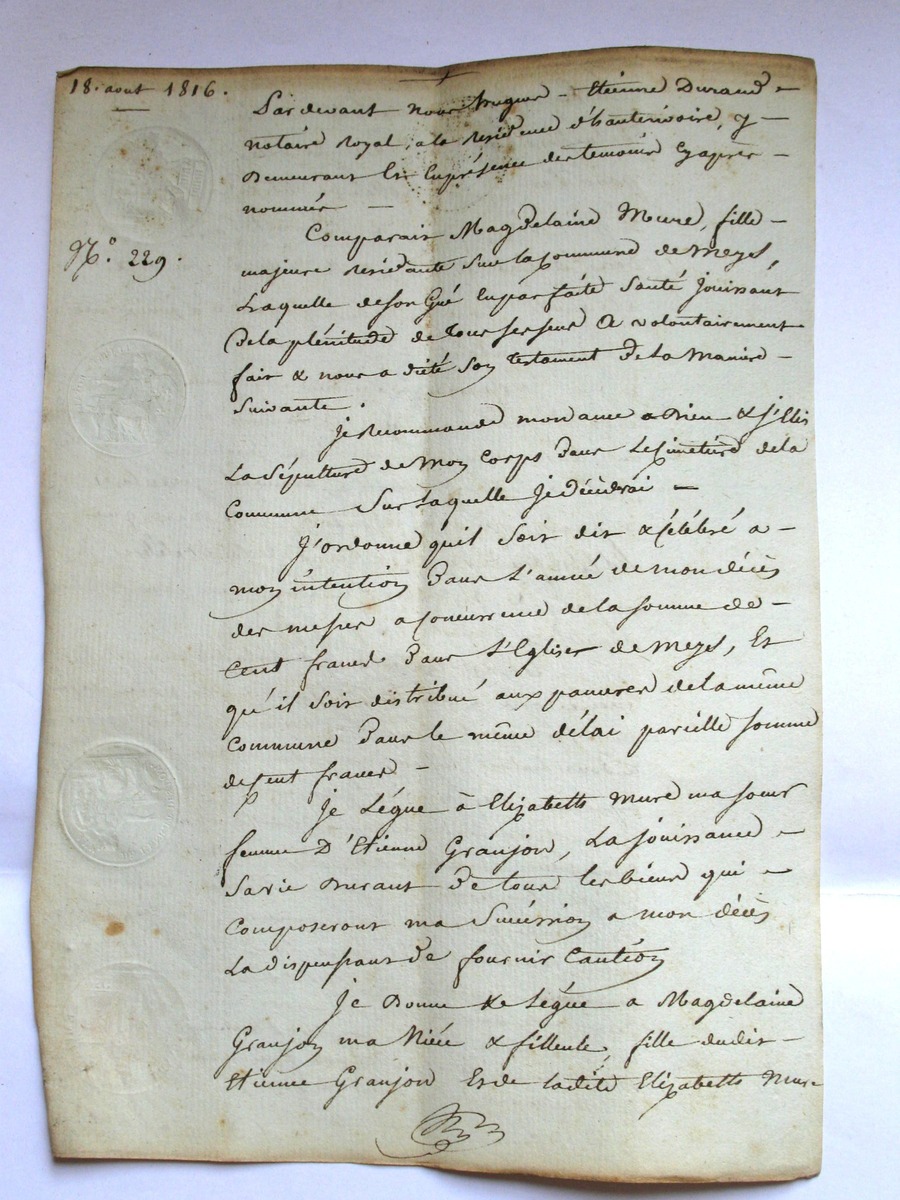 18. aout 1816.
Pardevant nous hugues - Etienne Durand -
notaire royal, a la residence d'hauterivoire, y -
Demeurant Et Enprésence des temoins Cyaprès -
nommés -
N.o 229.
Comparait Magdelaine Mure, fille -
majeure residante sur la Commune de Meys,
Laquelle de son Gré En parfaite Santé jouissant
De la plénitude de tous ses sens a volontairement
fait & nous a dicté son testament De la Maniere -
Suivante.
je Recommande mon ame a Dieu & j'Elis
La sépulture de Mon Corps Dans Le Cimetiere de la
Commune Sur laquelle je décèdrai -
J'ordonne qu'il soit dit & Célébré a -
mon intention Dans L'année de mon décès
des messes a Concurrence de la somme de -
Cent francs Dans L'Eglise de Meys, Et
qu'il soit distribué aux pauvres de la même
Commune Dans le même délai pareille somme
de Cent francs -
Je Légue à Elizabeth Mure ma soeur
femme D'Etienne Granjon, La jouissance -
Sa vie Durant De tous les biens qui -
Composeront ma Succession a mon décès
La dispensant De fournir Caution
Je Donne & Légue a Magdelaine
Granjon ma Niéce & filleule, fille dudit -
Etienne Granjon Et de ladite Elizabeth Mure